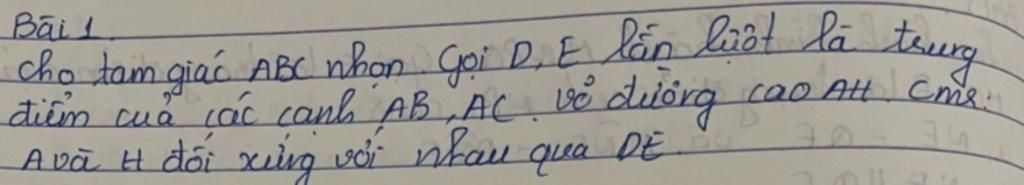 Bài 1.
Cho tam giác ABC nhọn. Gọi D, E lần lượt là trung
điểm của các cạnh AB, AC. vẽ đường cao AH. Cmr:
A và H đối xứng với nhau qua DE.